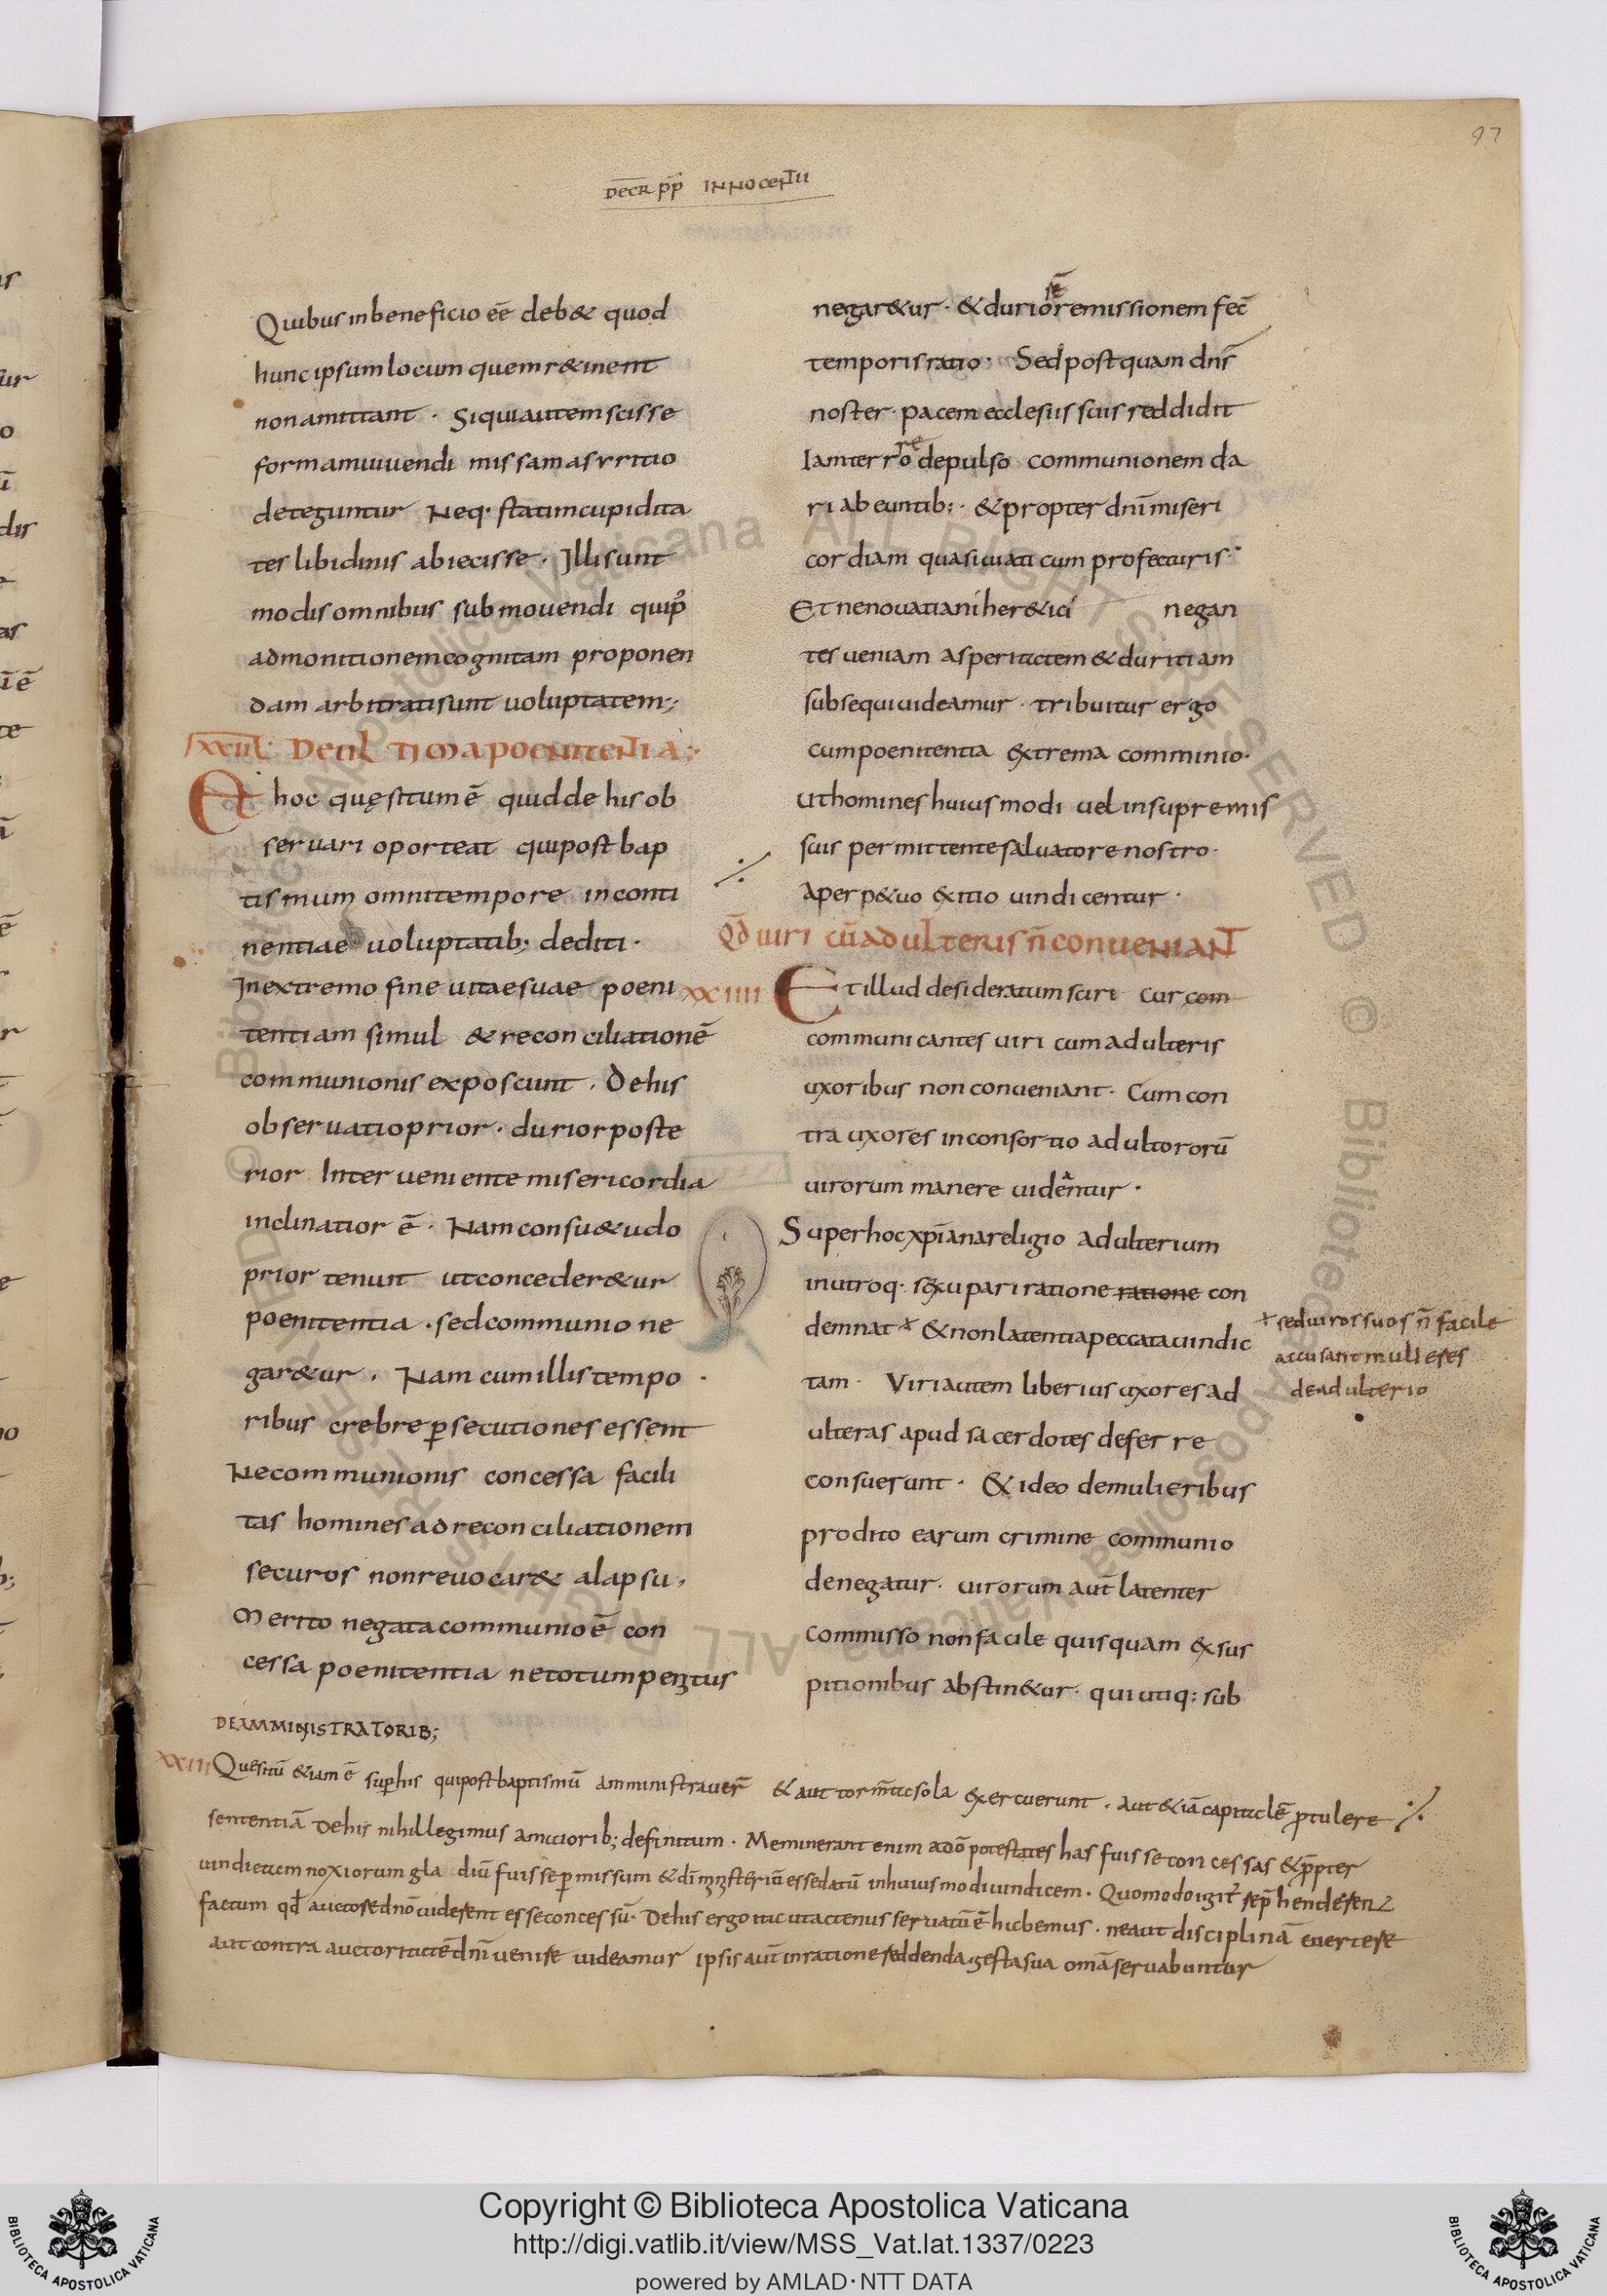 97
DECR PP INNOCENTII
Quibus in beneficio eē deb& quod
hunc ipsum locum quem r&inent
non amittant · Siqui autem scisse
formam uiuendi missam asrritio
deteguntur Neq· statim cupidita
tes libidinis abiecisse · Illi sunt
modis omnibus submouendi quip
admonitionem cognitam proponen
dam arbitrati sunt uoluptatem;
De ul tima poenitentia
Et hoc quęsitum ē quid de his ob
seruari oporteat qui post bap
tismum omni tempore inconti
nentiae uoluptatib; dediti ·
In extremo fine uitae suae poeni
tentiam simul & reconciliationē
communionis exposcunt . De his
obseruatio prior · durior poste
rior Interueniente misericordia
inclinatior ē · Nam consu&udo
prior tenuit ut conceder&ur
poenitentia · sed communio ne
gar&ur . Nam cum illis tempo
ribus crebre p̄secutiones essent
Ne communionis concessa facili
tas homines ad reconciliationem
securos non reuocar& a lapsu,
Merito negata communio ē con
cessa poenitentia ne totum penitus
negar&ur · & durio rē remissionem fec̄
temporis ratio · Sed postquam dn̄s
noster · pacem ecclesiis suis reddidit
Iam terrore depulso communionem da
ri abeuntib: · & propter dn̄i miseri
cordiam quasi uiaticum profecturis ·
Et ne nouatiani her&ici negan
tes ueniam asperitatem & duritiam
subsequi uideamur · tribuitur ergo
cum poenitentia extrema comminio·
Ut homines huiusmodi uel in supremis
suis permittente saluatore nostro·
A perp&uo exitio uindicentur ·
Qd̄ uiri cū adulteris n̄ conueniant
XXIIII Et illud desideratum sciri Cur com
communicantes uiri cum adulteris
uxoribus non conueniant · Cum con
tra uxores in consortio adultororū
uirorum manere uideantur ·
Super hoc xp̄iana religio adulterium
in utroq· sexu pari ratione ratione con
demnat & non latentia peccata uindic
tam · Viri autem liberius uxores ad
ulteras apud sacerdotes deferre
consuerunt · & ideo de mulieribus
prodito earum crimine communio
denegatur · uirorum aut̄ latenter
commisso non facile quisquam ex sus
pitionibus abstin&ur · qui utiq: sub
sed uiros suos n̄ facile
accusant mulieres
de adulterio
DE AMMINISTRATORIB;
XXIII Quesitū &iam ē super his qui post baptismū amministrauer̄ & aut torm̄ta sola exercuerunt . aut &iā capitalē ptulere
sententiā De his nihil legimus a maiorib; definitum · Meminerant enim a dō potestates has fuisse concessas & pp̄ter
uindictam noxiorum gladiū fuisse p̄missum & dī ministeriū esse datū in huiusmodi uindicem · Quomodo igit̄ rep̄henderent
factum qd̄ auctore dn̄o uiderent esse concessū · De his ergo ita ut actenus seruatū ē habemus · ne aut disciplinā euertere
aut contra auctoritatē dn̄i uenire uideamur ipsis aut̄ in ratione reddenda gesta sua omā seruabuntur
© Biblioteca Apostolica Vaticana ALL RIGHTS RESERVED
© Biblioteca Apostolica Vaticana ALL RIGHTS RESERVED
BIBLIOTECA APOSTOLICA VATICANA
Copyright © Biblioteca Apostolica Vaticana
http://digi.vatlib.it/view/MSS_Vat.lat.1337/0223
powered by AMLAD·NTT DATA
BIBLIOTECA APOSTOLICA VATICANA